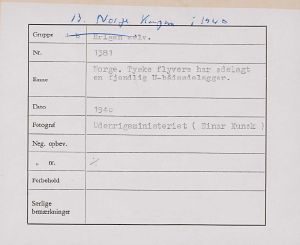 13. Norge Krigen i 1940
Gruppe Krigen
Nr. 1381
Emne Norge. Tyske flyvere har ødelagt
en fjendlig U-bådsødelægger.
Dato 1940
Fotograf Udenrigsministeriet ( Einar Nunck )
Neg. opbev.
" nr. %
Forbehold
Særlige
bemærkninger